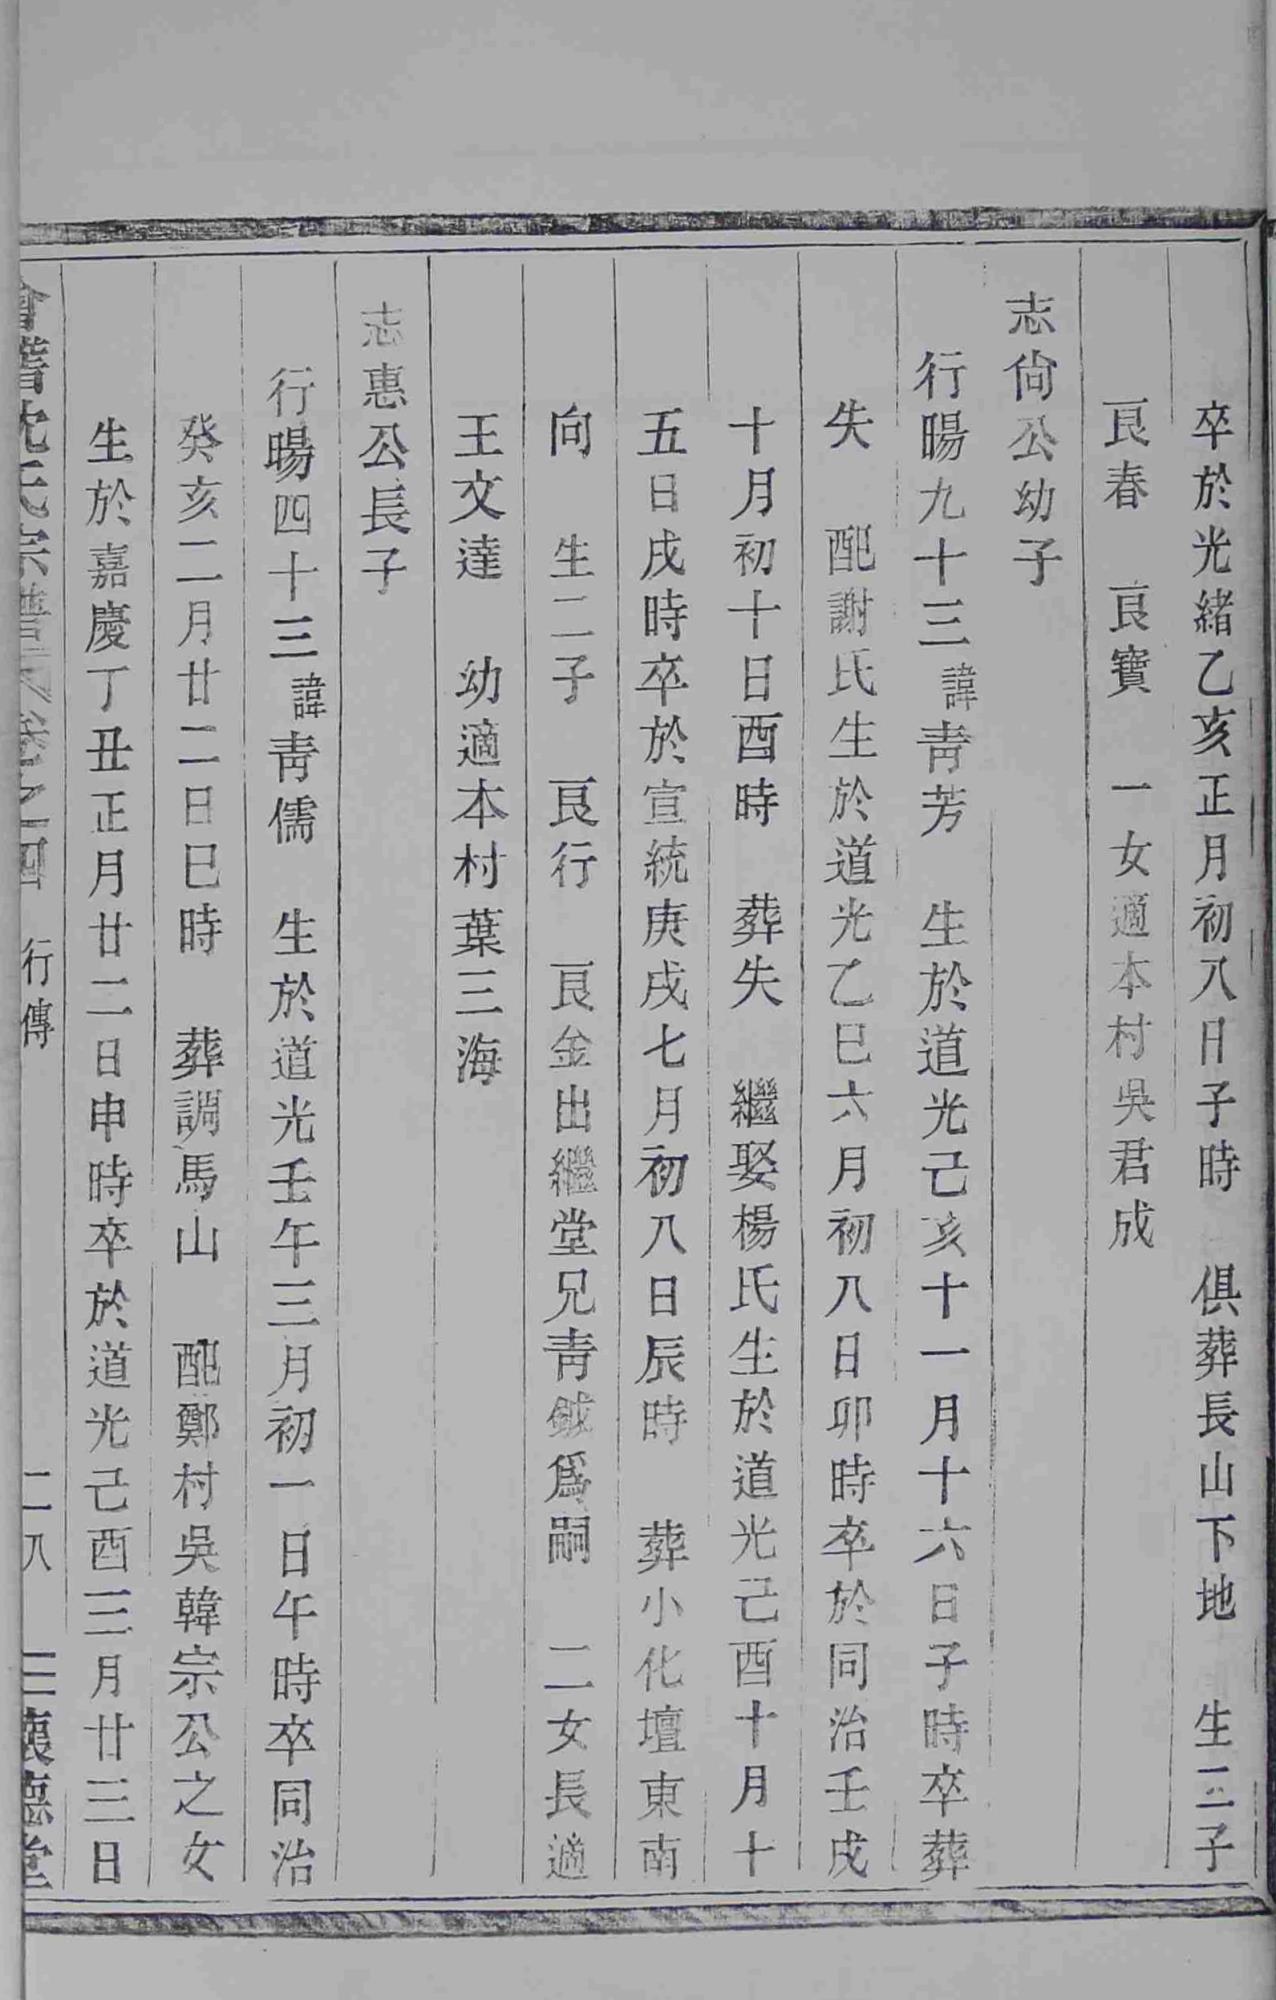 卒於光緒乙亥正月初八日子時　俱葬長山下地　生二子
良春　良寶　一女適本村吳君成
志尙公幼子
行暘九十三諱靑芳　生於道光己亥十一月十六日子時卒葬
失　配謝氏生於道光乙巳六月初八日卯時卒於同治壬戌
十月初十日酉時　葬失　繼娶楊氏生於道光己酉十月十
五日戌時卒於宣統庚戌七月初八日辰時　葬小化壇東南
向　生二子　良行　良金出繼堂兄靑鉞爲嗣　二女長適
王文達　幼適本村葉三海
志惠公長子
行暘四十三諱靑儒　生於道光壬午三月初一日午時卒同治
癸亥二月廿二日巳時　葬調馬山　配鄭村吳韓宗公之女
生於嘉慶丁丑正月廿二日申時卒於道光己酉三月廿三日
會稽沈氏宗譜　卷之四　行傳　二八　三懷德堂